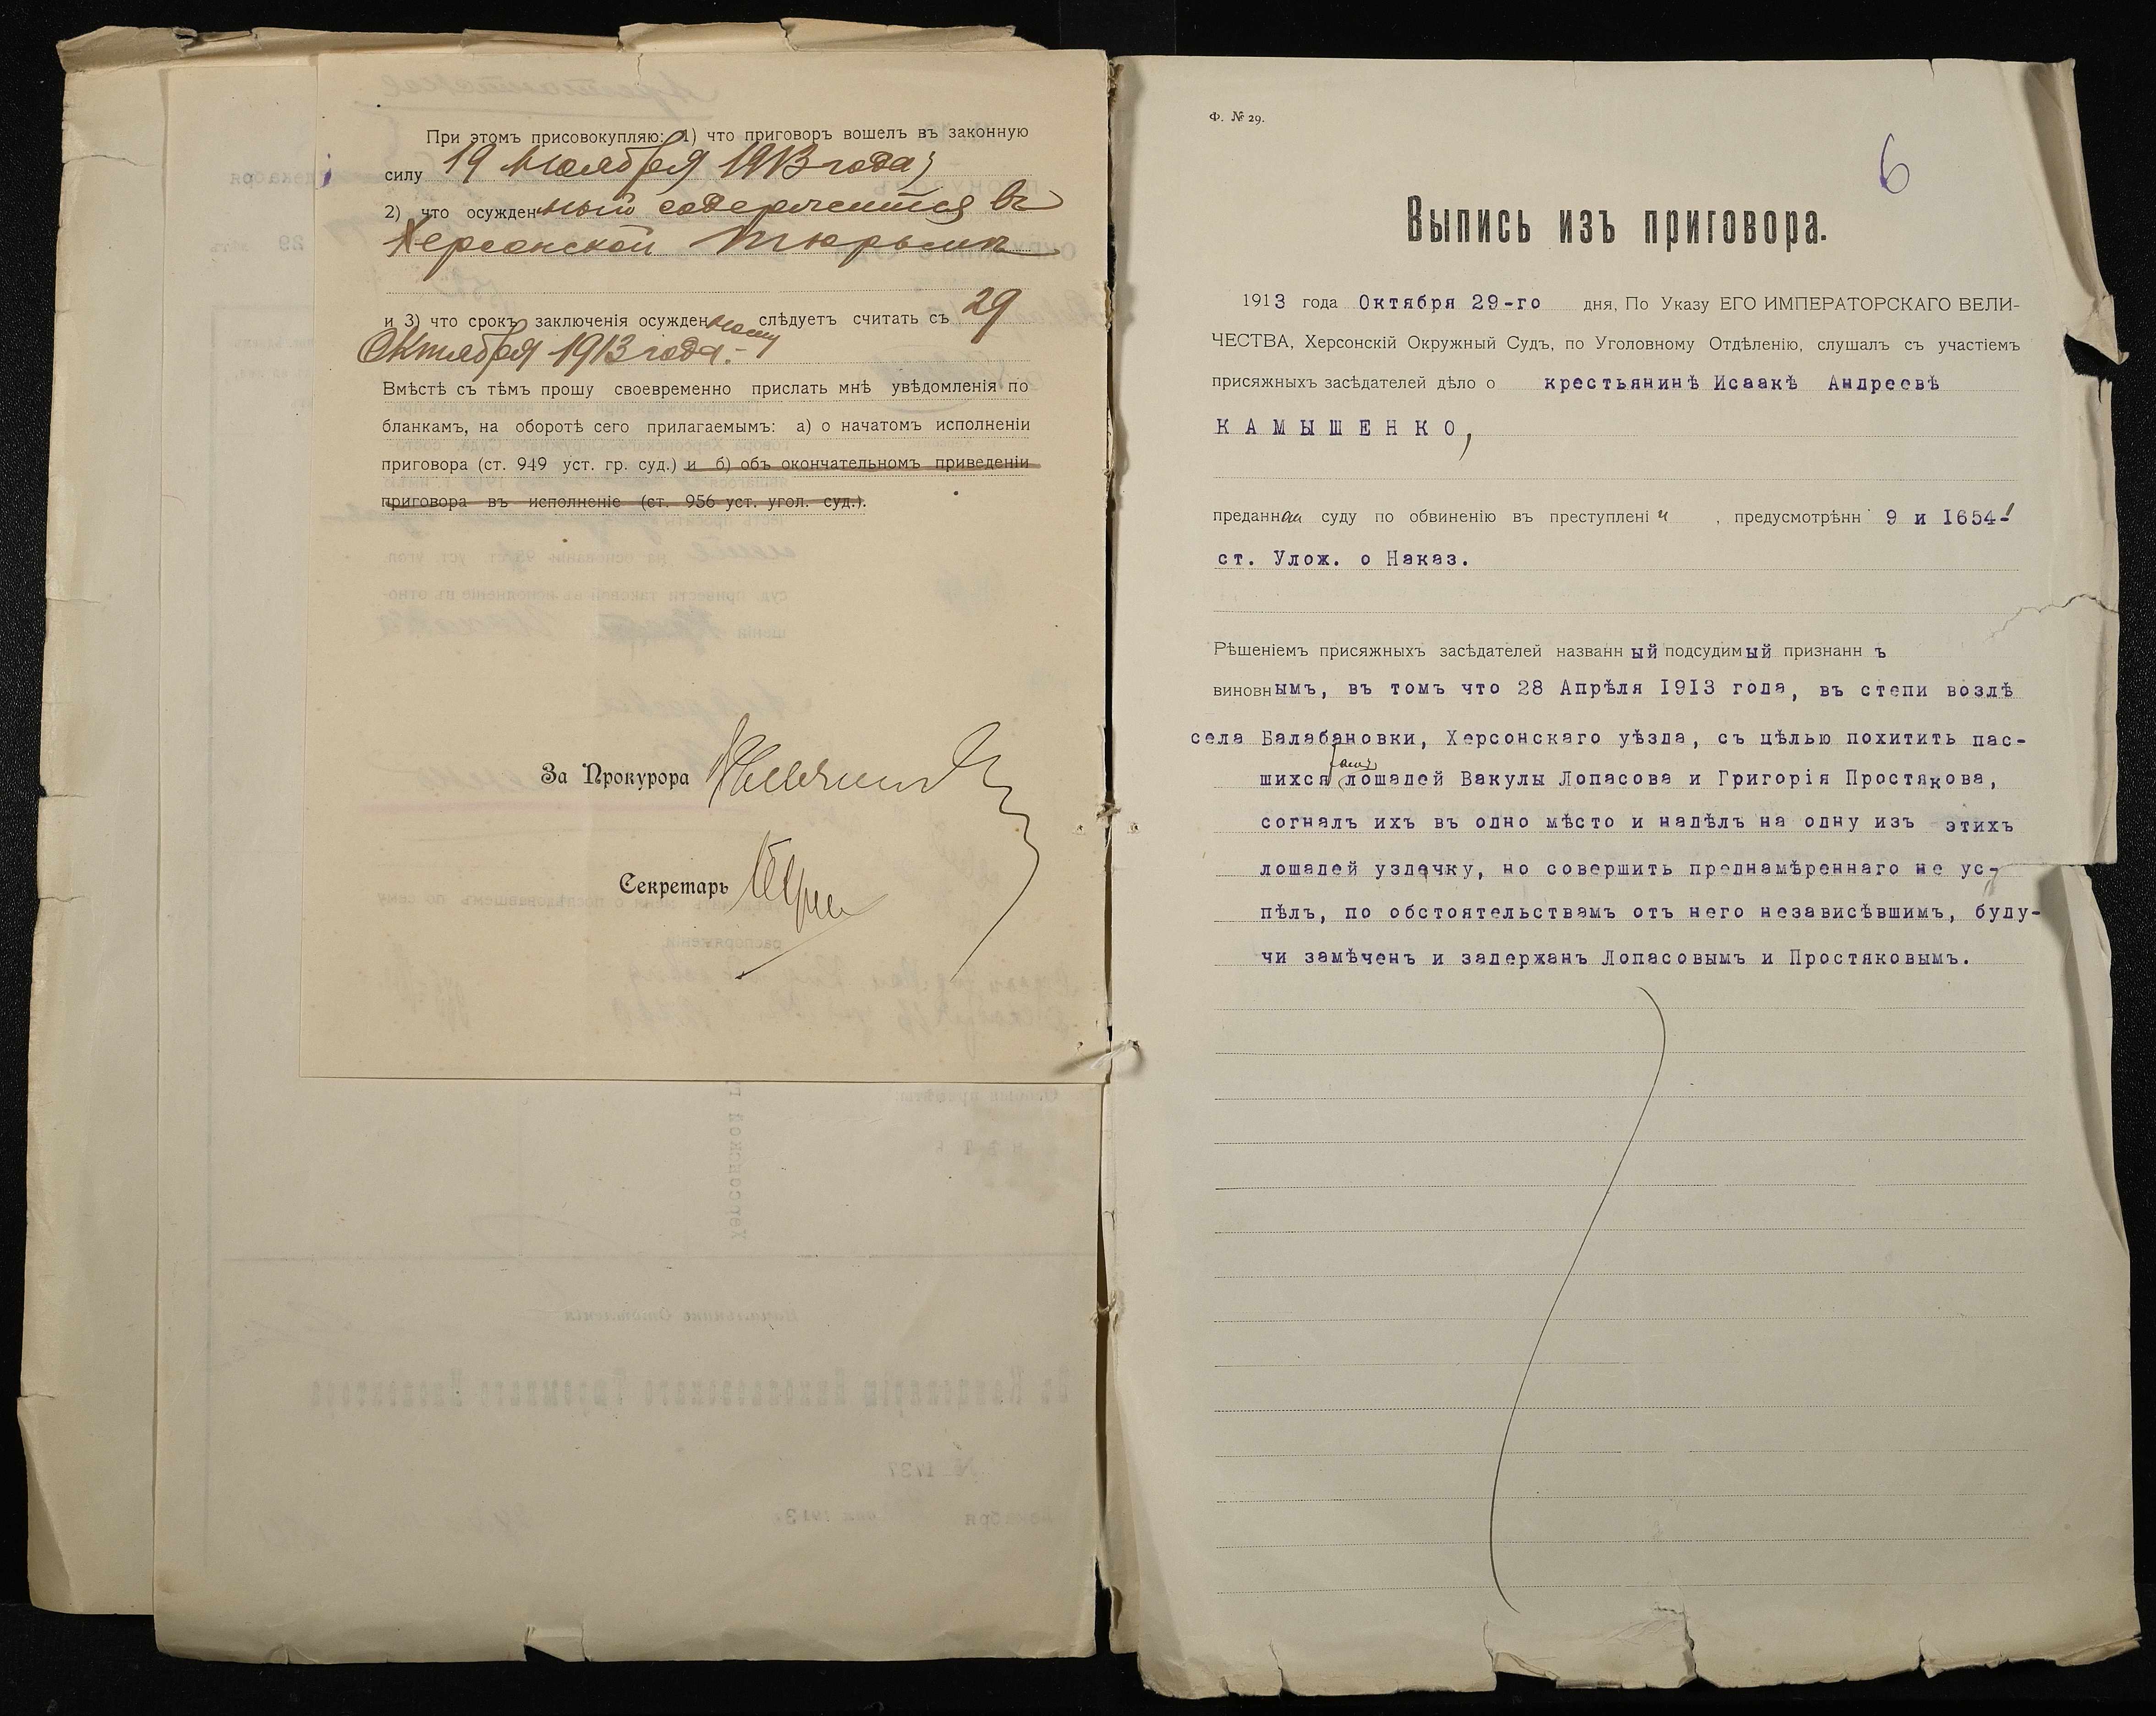 При этомъ присовокупляю: 1) что приговоръ вошелъ въ законную
силу 19 Ноября 1913 года;
2) что осужденный содержится въ
Херсонской тюрьмѣ
и 3) что срокъ заключенія осужденному слѣдуетъ считать съ 29
Октября 1913 года.-
Вмѣстѣ съ тѣмъ прошу своевременно прислать мнѣ увѣдомленія по
бланкамъ, на оборотѣ сего прилагаемымъ: а) о начатомъ исполненіи
приговора (ст. 949 уст. гр. суд.) и б) объ окончательномъ приведеніи
приговора въ исполненіе (ст. 956 уст. угол. суд.).
За Прокурора
Секретарь
Ф. № 29.
6
Выпись изъ приговора.
1913 года Октября 29-го дня, По Указу ЕГО ИМПЕРАТОРСКАГО ВЕЛИ-
ЧЕСТВА, Херсонскій Окружный Судъ, по Уголовному Отдѣленію, слушалъ съ участіемъ
присяжныхъ засѣдателей дѣло о крестьянинѣ Исаакѣ Андреевѣ
КАМЫШЕНКО,
преданном суду по обвиненію въ преступленіи, предусмотрѣнн 9 и 1654-1
ст. Улож. о Наказ.
Рѣшеніемъ присяжныхъ засѣдателей названный подсудимый признаннъ
виновнымъ, въ томъ что 28 Апрѣля 1913 года, въ степи возлѣ
села Балабановки, Херсонскаго уѣзда, съ цѣлью похитить пас-
шихся тамъ лошадей Вакулы Лопасова и Григорія Простякова,
согналъ ихъ въ одно мѣсто и надѣлъ на одну изъ этихъ
лошадей уздечку, но совершить преднамѣреннаго не ус-
пѣлъ, по обстоятельствамъ отъ него независѣвшимъ, буду-
чи замѣченъ и задержанъ Лопасовымъ и Простяковымъ.